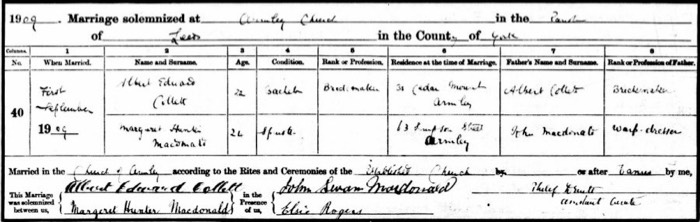 1909. Marriage solemnized at Armley Church in the Parish
of Leeds in the County of York
Columns. 1 2 3 4 5 6 7 8
No. When Married. Name and Surname. Age. Condition. Rank or Profession. Residence at the time of Marriage. Father's Name and Surname. Rank or Profession of Father.
40
First September 1909
Albert Edward Collett 22 Bachelor Brickmaker Cedar Mount Armley Albert Collett Brickmaker
Margaret Hunter Macdonald Spinster 63 Simpson Street Armley John Macdonald Warp-dresser
Married in the Church of Armley according to the Rites and Ceremonies of the Established Church by or after Banns by me,
This Marriage was solemnized between us, Albert Edward Collett in the Presence of us, John Swan Macdonald Philip
Margaret Hunter Macdonald Elsie Rogers Assistant Curate